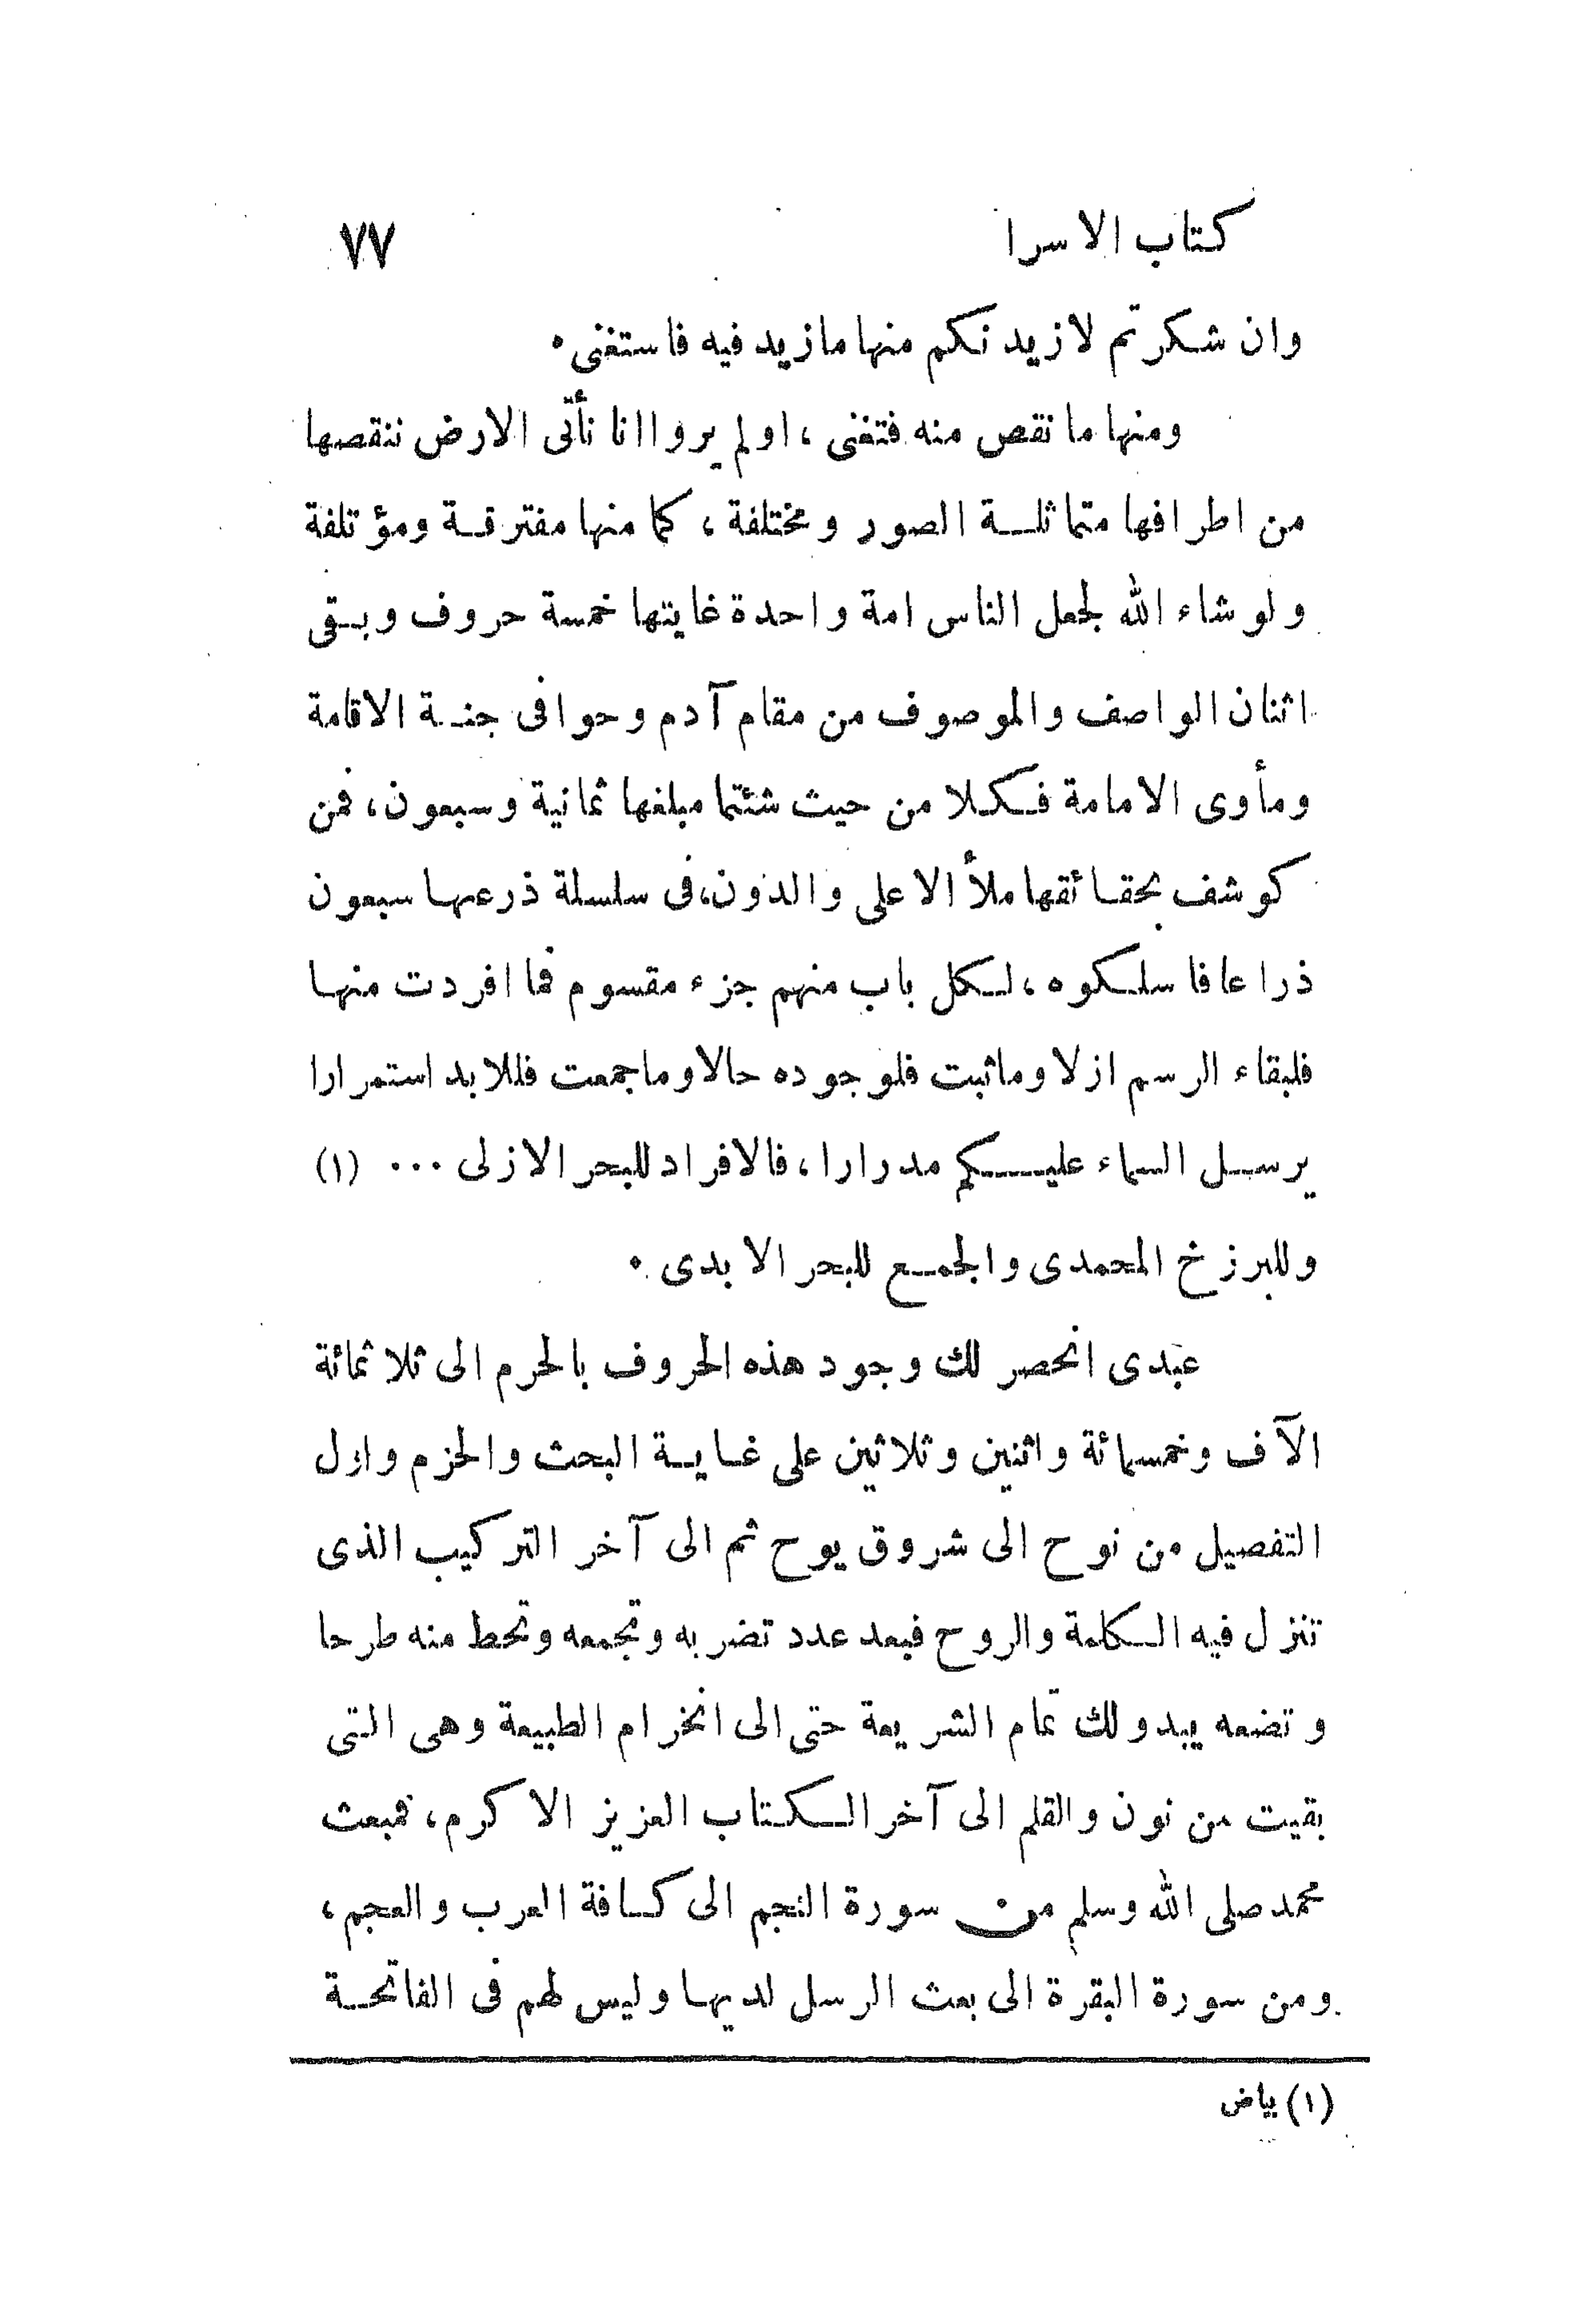 كتاب الاسرا ٧٧
وان شكرتم لازيدنكم منها مازيد فيه فاستغنى ٠
ومنها ما نقص منه فتغنى ، اولم يروا انا نأتى الارض ننقصها
من اطرافها متماثلة الصور ومختلفة ، كما منها مفترقة ومؤتلفة
ولو شاء الله لجعل الناس امة واحدة غايتها خمسة حروف وبقى
اثنان الواصف والموصوف من مقام آدم وحوا فى جنة الاقامة
ومأوى الامامة فكلا من حيث شئتما مبلغها ثمانية وسبعون، فمن
كوشف بحقائقها ملأ الاعلى والدون، فى سلسلة ذرعها سبعون
ذراعا فاسلكوه ، لكل باب منهم جزء مقسوم فما افردت منها
فلبقاء الرسم ازلا وما ثبت فلوجوده حالا وما جمعت فللابد استمرارا
يرسل السماء عليكم مدرارا ، فالافراد للبحر الازلى ... (١)
وللبرزخ المحمدى والجمع للبحر الابدى ٠
عبدى انحصر لك وجود هذه الحروف بالحرم الى ثلاثمائة
الآف وخمسمائة واثنين وثلاثين على غاية البحث والحزم واول
التفصيل من نوح الى شروق يوح ثم الى آخر التركيب الذى
تنزل فيه الكلمة والروح فبعد عدد تضربه وتجمعه وتحط منه طرحا
وتضعه يبدو لك تمام الشريعة حتى الى انخرام الطبيعة وهى التى
بقيت من نون والقلم الى آخر الكتاب العزيز الاكرم ، فمبعث
محمد صلى الله وسلم من سورة النجم الى كافة العرب والعجم ،
ومن سورة البقرة الى بعث الرسل لديها وليس لهم فى الفاتحة
(١) بياض